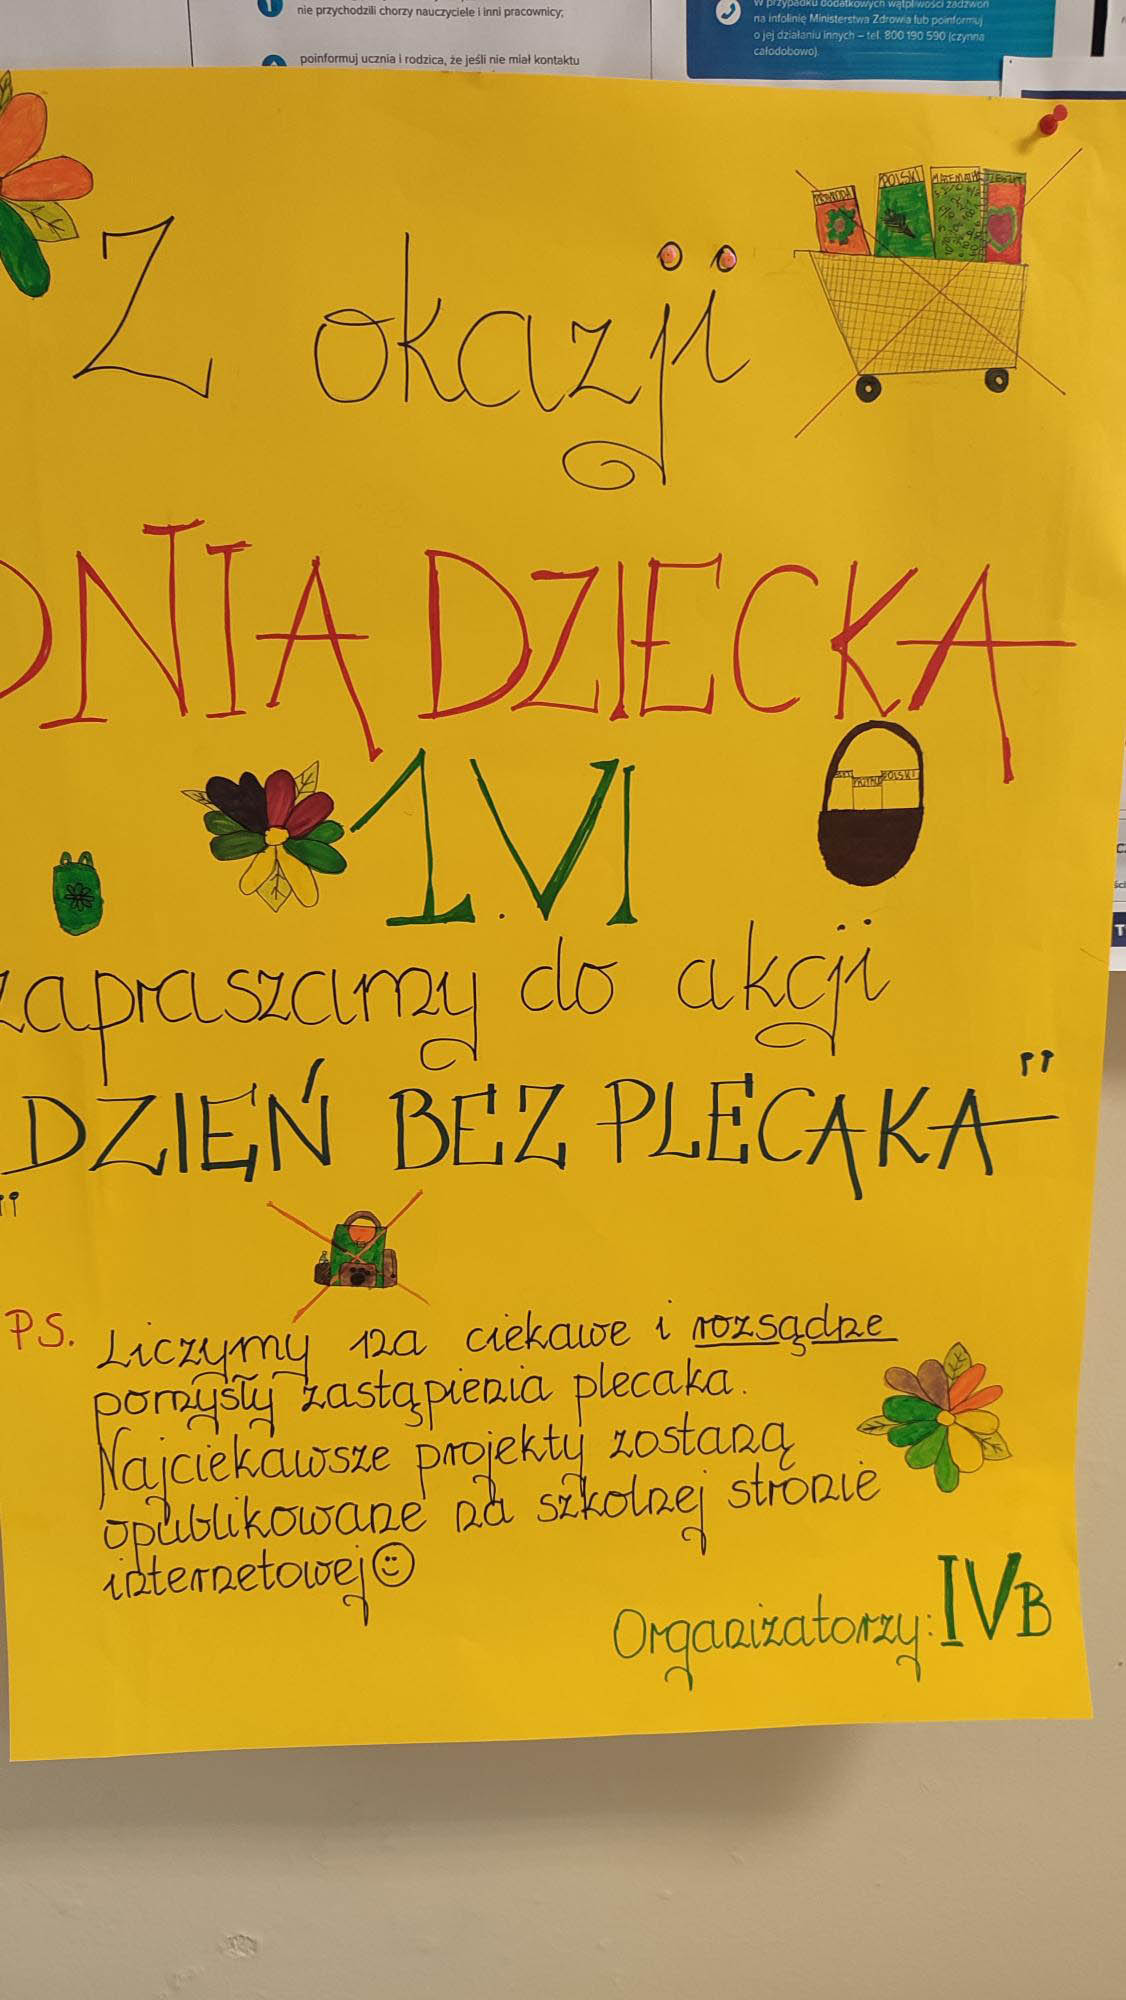 nie przychodzili chorzy nauczyciele i inni pracownicy;
poinformuj ucznia i rodzica, że jeśli nie miał kontaktu
W przypadku dodatkowych wątpliwości zadzwoń
na infolinię Ministerstwa Zdrowia lub poinformuj
o jej działaniu innych – tel. 800 190 590 (czynna
całodobowo).
POLSKI
Z okazji
DNIA DZIECKA
1.VI
POLSKI
zapraszamy do akcji
„DZIEŃ BEZ PLECAKA”
PS. Liczymy na ciekawe i rozsądne
pomysły zastąpienia plecaka.
Najciekawsze projekty zostaną
opublikowane na szkolnej stronie
internetowej
Organizatorzy: IVB